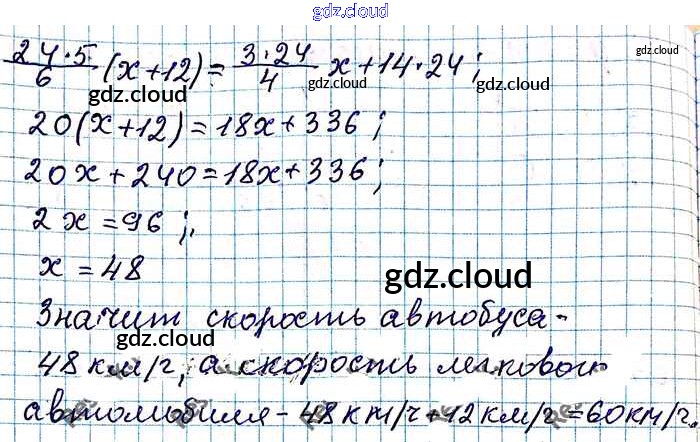 gdz.cloud
24·5/6 (x+12) = 3·24/4 x+14·24;
gdz.cloud
gdz.cloud
gdz.cloud
gdz.cloud
20(x+12)=18x+336;
20x+240=18x+336;
2x=96;
x=48
gdz.cloud
Значит скорость автобуса-
gdz.cloud
48км/г, а скорость легкового
автомобиля-48км/ч+12км/г=60км/г.